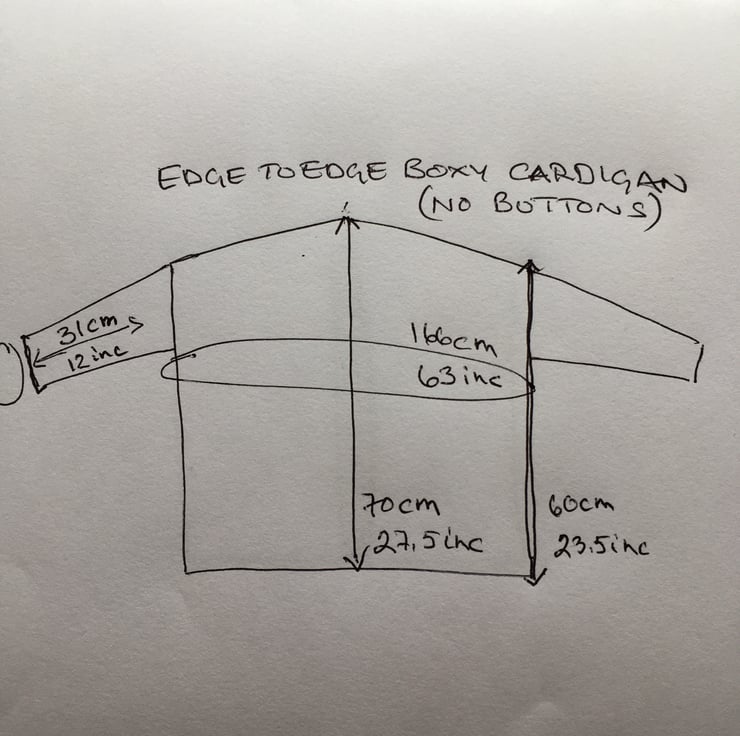 EDGE TO EDGE BOXY CARDIGAN
(NO BUTTONS)
31cm
12 inc
166cm
63 inc
70cm
27,5 inc
60cm
23.5 inc